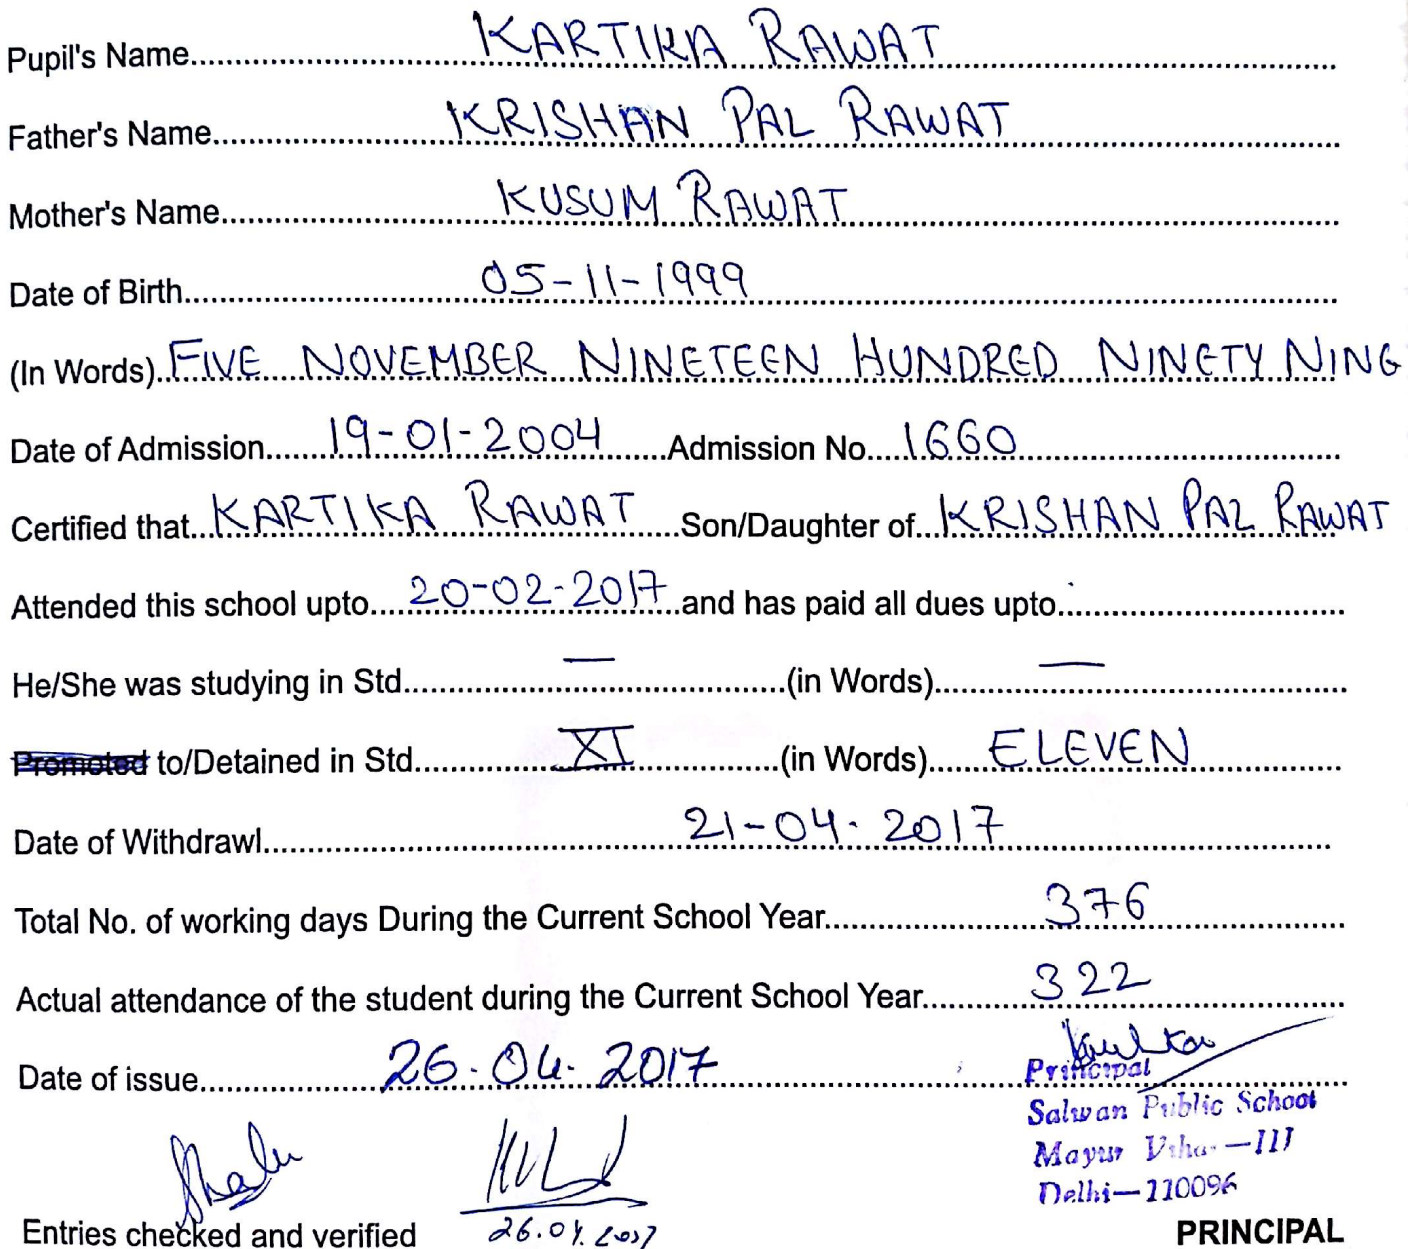 Pupil's Name KARTIKA RAWAT
Father's Name KRISHAN PAL RAWAT
Mother's Name KUSUM RAWAT
Date of Birth 05-11-1999
(In Words) FIVE NOVEMBER NINETEEN HUNDRED NINETY NINE
Date of Admission 19-01-2004 Admission No 1660
Certified that KARTIKA RAWAT Son/Daughter of KRISHAN PAL RAWAT
Attended this school upto 20-02-2017 and has paid all dues upto
He/She was studying in Std. — (in Words) —
Promoted to/Detained in Std. XI (in Words) ELEVEN
Date of Withdrawl 21-04-2017
Total No. of working days During the Current School Year 376
Actual attendance of the student during the Current School Year 322
Date of issue 26.04.2017
Principal
Salwan Public School
Mayur Vihar—III
Delhi—110096
Entries checked and verified 26.04.2017 PRINCIPAL